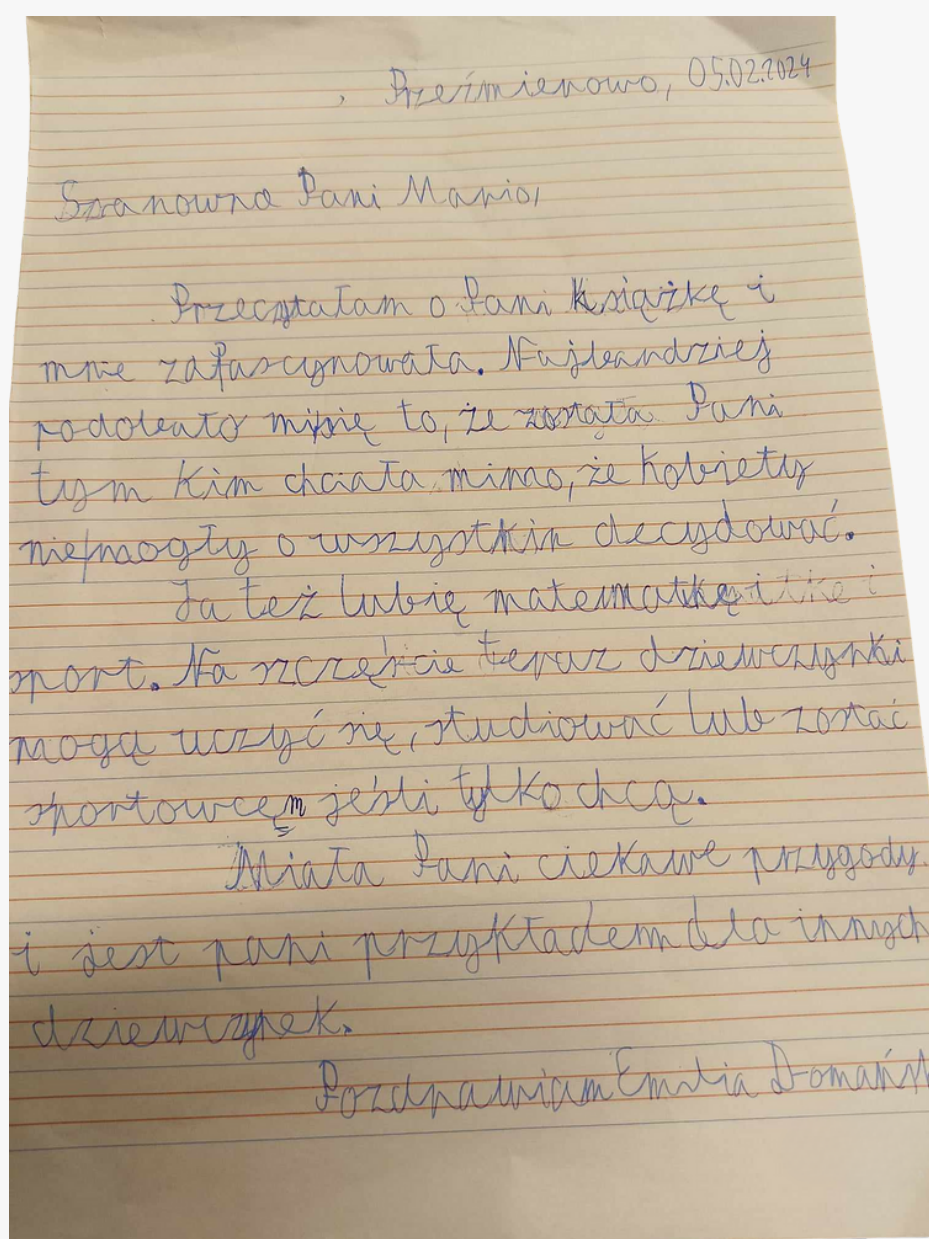 Przeźmierowo, 05.02.2024
Szanowna Pani Mario,
Przeczytałam o Pani książkę i
mnie zafascynowała. Najbardziej
podobało mi się to, że została Pani
tym kim chciała mimo, że kobiety
nie mogły o wszystkim decydować.
Ja też lubię matematkę i
sport. Na szczęście teraz dziewczynki
mogą uczyć się, studiować lub zostać
sportowcem jeśli tylko chcą.
Miała Pani ciekawe przygody
i jest pani przykładem dla innych
dziewczynek.
Pozdrawiam Emilia Domańsk